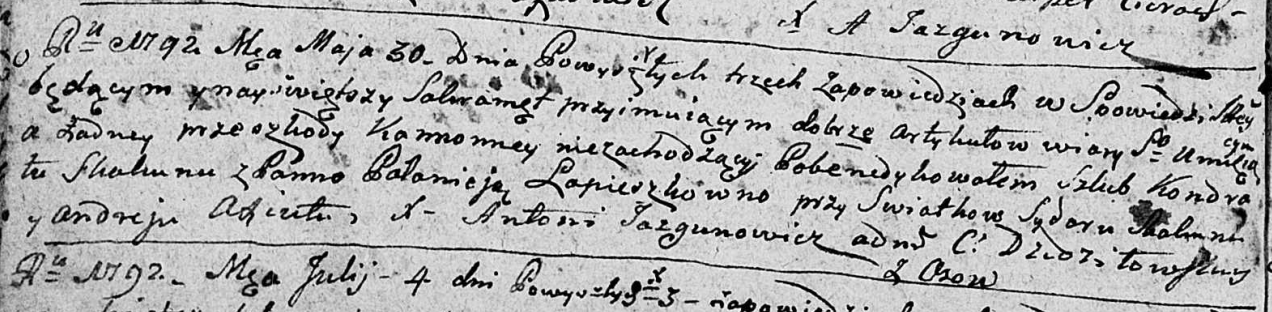 X A Jazgunowicz
Rᵘ 1792 Mca Maja 30. Dnia Powyszłych trzech Zapowiedziach w Spowiedzi Stey
będącym y nayświętszy Sakramęt przyimuiącym dobrze Artykułow wiary Sᵗᵒ umieią cym
a żadney przeszkody Kannonney niezachodzący Pobenedykowałem Szlub Kondra
tu Skakunu z Panno Pałanieją Łapieszkowno przy Swiatkow Sydoru Skakunu
y Andreju X Antoni Jazgunowicz
z Osow
Rᵘ 1792. Mca Julij 4 dni Powyszłych 3 zapowiedzi